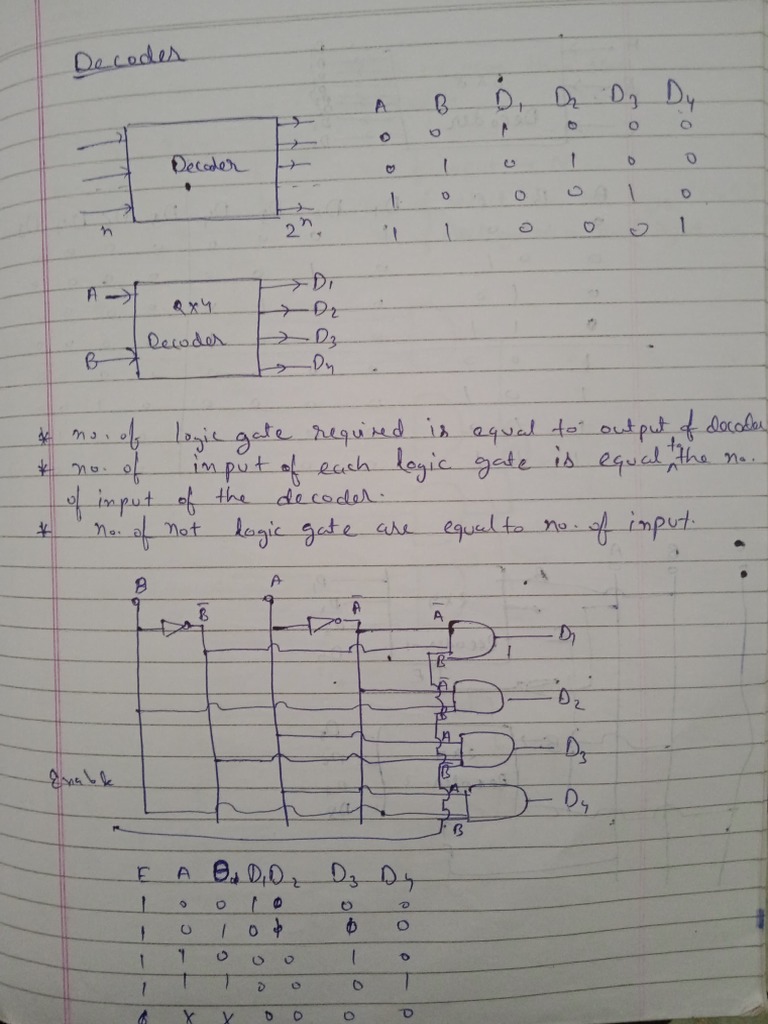 Decoder
A B D1 D2 D3 D4
0 0 1 0 0 0
0 1 0 1 0 0
1 0 0 0 1 0
1 1 0 0 0 1
Decoder
n 2^n.
A D1
2x4 D2
Decoder D3
B D4
* no. of logic gate required is equal to output of decoder
* no. of input of each logic gate is equal to the no.
of input of the decoder.
* no. of not logic gate are equal to no. of input.
B A
B̅ A̅ A̅ D1
B̅ 1
A̅ D2
B
A D3
B̅
Enable A D4
B
E A B D1 D2 D3 D4
1 0 0 1 0 0 0
1 0 1 0 0 0
1 1 0 0 0 1 0
1 1 1 0 0 0 1
X X 0 0 0 0